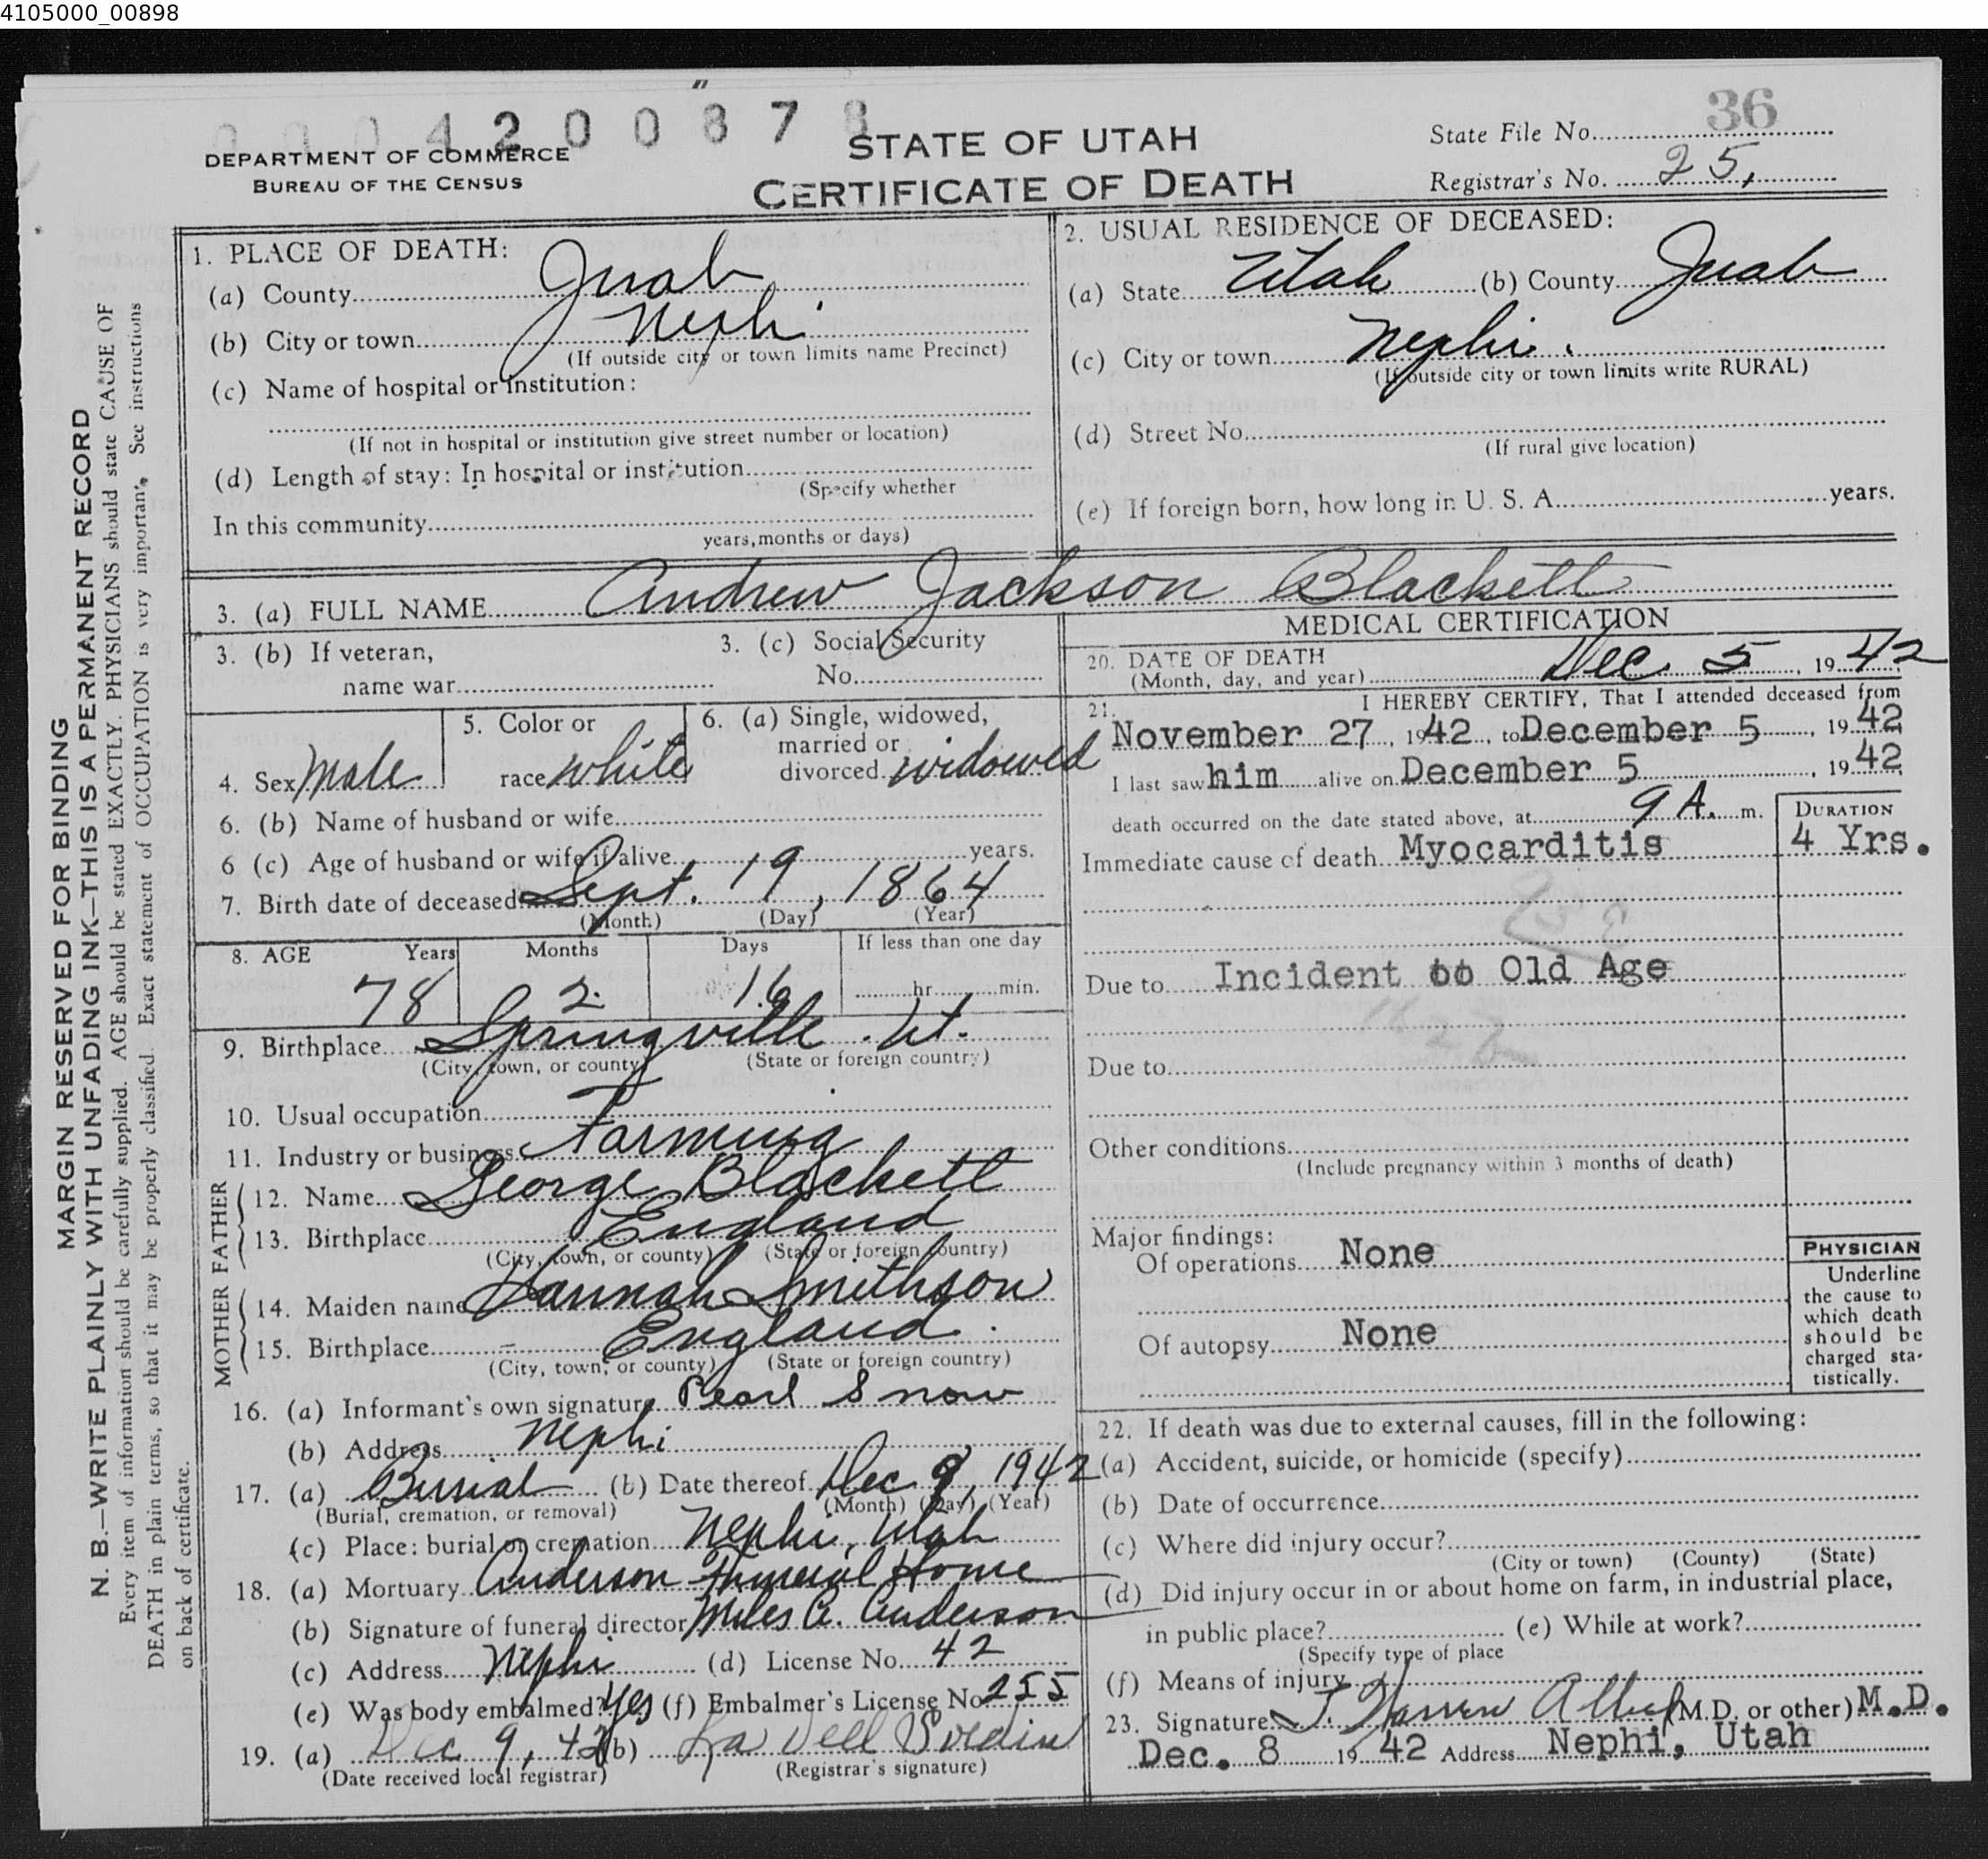 4105000_00898
0004200878
36
DEPARTMENT OF COMMERCE
BUREAU OF THE CENSUS
STATE OF UTAH
CERTIFICATE OF DEATH
State File No.
Registrar's No. 25,
MARGIN RESERVED FOR BINDING
N. B.—WRITE PLAINLY WITH UNFADING INK—THIS IS A PERMANENT RECORD
Every item of information should be carefully supplied. AGE should be stated EXACTLY. PHYSICIANS should state CAUSE OF
DEATH in plain terms, so that it may be properly classified. Exact statement of OCCUPATION is very important. See instructions
on back of certificate.
1. PLACE OF DEATH:
(a) County Juab
(b) City or town Nephi
(If outside city or town limits name Precinct)
(c) Name of hospital or institution:
(If not in hospital or institution give street number or location)
(d) Length of stay: In hospital or institution
(Specify whether
In this community
years, months or days)
2. USUAL RESIDENCE OF DECEASED:
(a) State Utah (b) County Juab
(c) City or town Nephi.
(If outside city or town limits write RURAL)
(d) Street No.
(If rural give location)
(e) If foreign born, how long in U. S. A. years.
3. (a) FULL NAME Andrew Jackson Blackett
3. (b) If veteran,
name war
3. (c) Social Security
No.
4. Sex Male
5. Color or
race white
6. (a) Single, widowed,
married or
divorced widowed
6. (b) Name of husband or wife
6 (c) Age of husband or wife if alive years.
7. Birth date of deceased Sept. 19, 1864
(Month) (Day) (Year)
8. AGE Years Months Days If less than one day
78 2 16 hr. min.
9. Birthplace Springville Ut.
(City, town, or county) (State or foreign country)
10. Usual occupation
11. Industry or business Farming
FATHER
12. Name George Blackett
13. Birthplace England
(City, town, or county) (State or foreign country)
MOTHER
14. Maiden name Hannah Smithson
15. Birthplace England.
(City, town, or county) (State or foreign country)
16. (a) Informant's own signature Pearl Snow
(b) Address Nephi
17. (a) Burial (b) Date thereof Dec 9, 1942
(Burial, cremation, or removal) (Month) (Day) (Year)
(c) Place: burial or cremation Nephi, Utah
18. (a) Mortuary Anderson Funeral Home
(b) Signature of funeral director Miles A. Anderson
(c) Address Nephi (d) License No. 42
(e) Was body embalmed? Yes (f) Embalmer's License No. 255
19. (a) Dec 9, 42 (b) La Dell
(Date received local registrar) (Registrar's signature)
MEDICAL CERTIFICATION
20. DATE OF DEATH
(Month, day, and year) Dec. 5, 1942
21. I HEREBY CERTIFY, That I attended deceased from
November 27, 1942, to December 5, 1942
I last saw him alive on December 5, 1942
death occurred on the date stated above, at 9 A. m.
DURATION
Immediate cause of death Myocarditis 4 Yrs.
Due to Incident to Old Age
Due to
Other conditions
(Include pregnancy within 3 months of death)
Major findings:
Of operations None
Of autopsy None
PHYSICIAN
Underline
the cause to
which death
should be
charged sta-
tistically.
22. If death was due to external causes, fill in the following:
(a) Accident, suicide, or homicide (specify)
(b) Date of occurrence
(c) Where did injury occur?
(City or town) (County) (State)
(d) Did injury occur in or about home on farm, in industrial place,
in public place? (e) While at work?
(Specify type of place
(f) Means of injury
23. Signature (M.D. or other) M.D.
Dec. 8 1942 Address Nephi, Utah